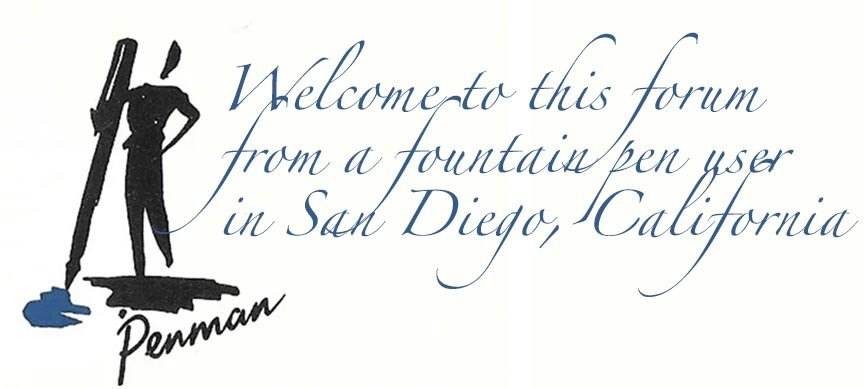 Welcome to this forum
from a fountain pen user
in San Diego, California
Penman